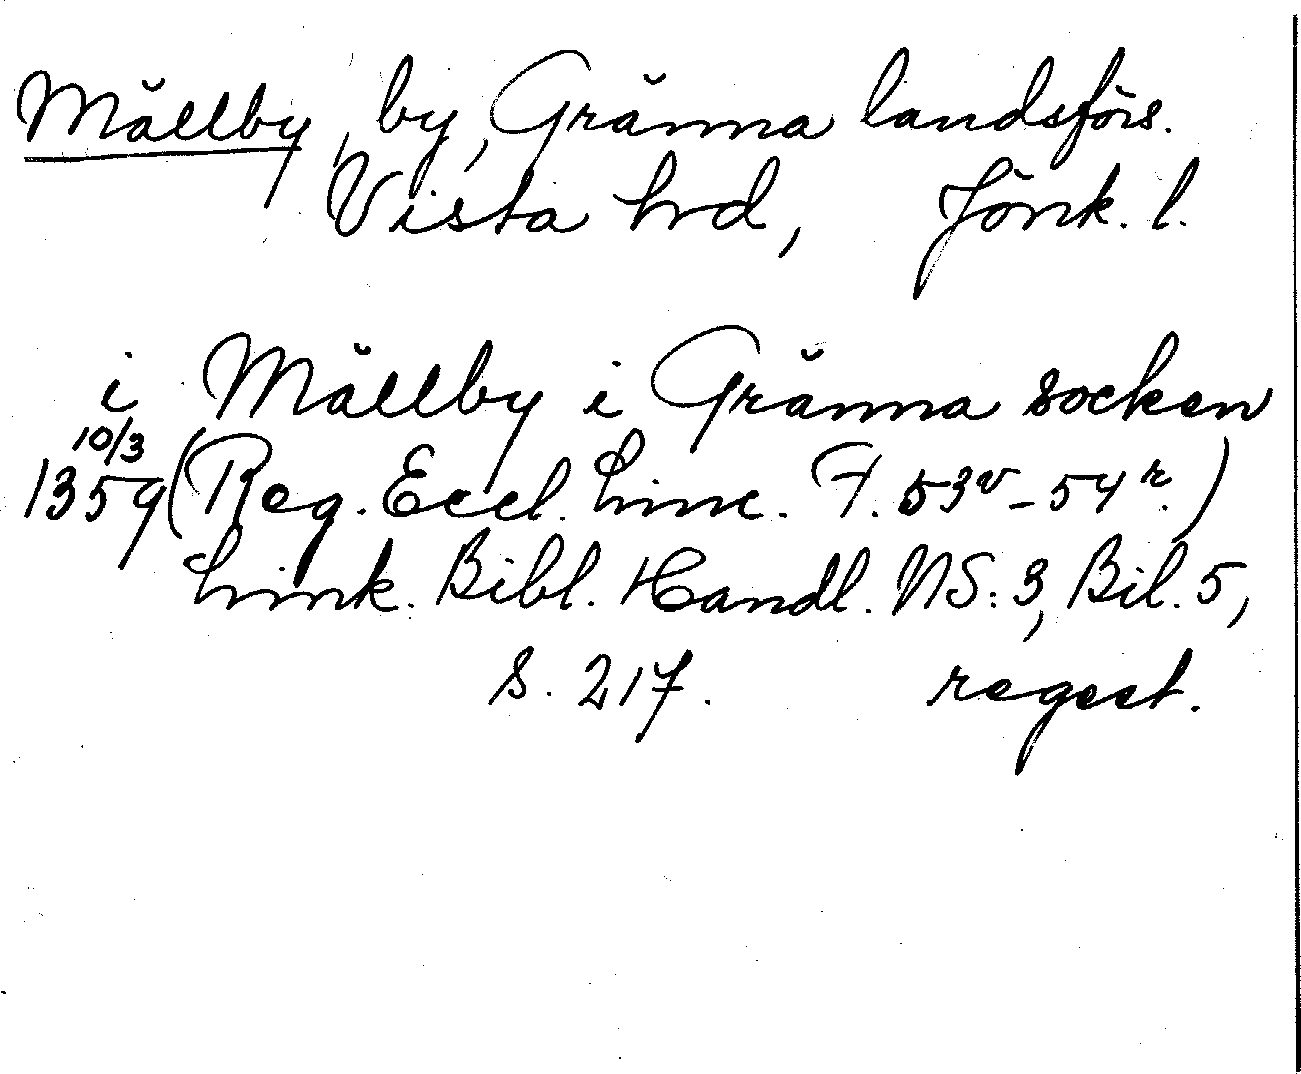 Mällby, by, Gränna landsförs.
Vista hrd, Jönk. l.
i Mällby i Gränna socken
10/3
1359 (Reg. Eccl. Linc. F. 53v-54r.)
Link. Bibl. Handl. NS: 3, Bil. 5,
s. 217. regest.